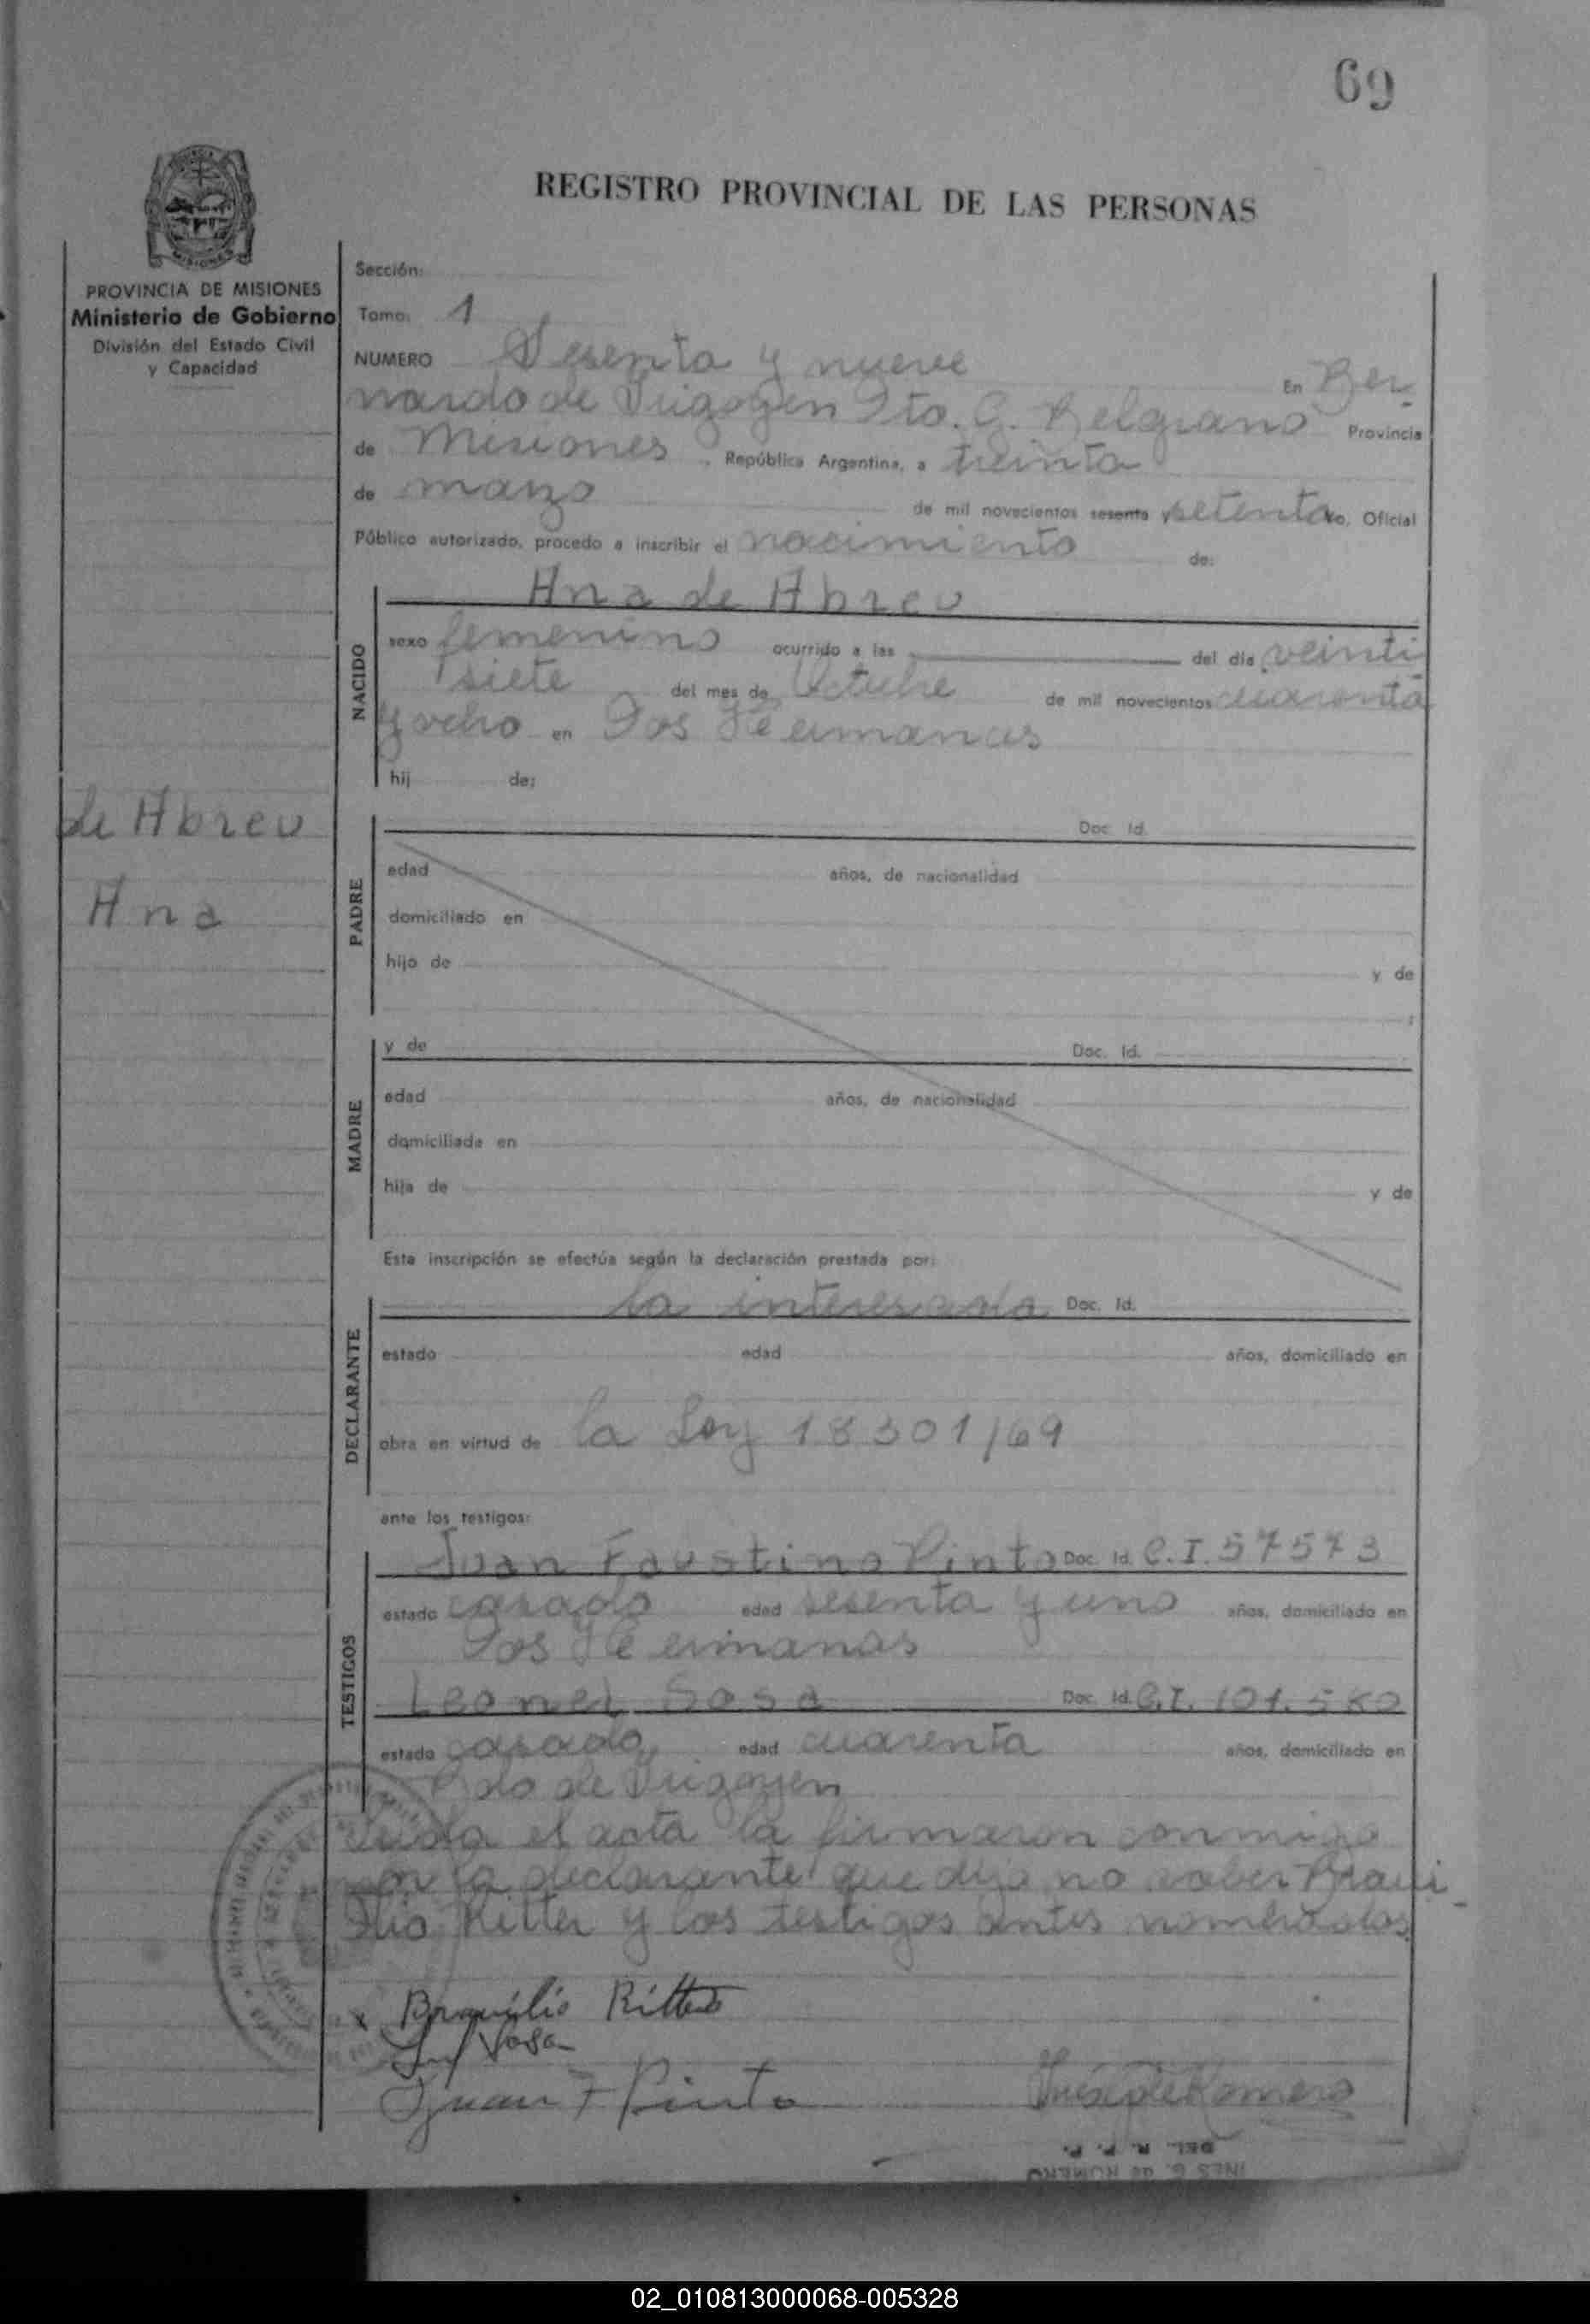 69
REGISTRO PROVINCIAL DE LAS PERSONAS
PROVINCIA DE MISIONES
Ministerio de Gobierno
División del Estado Civil
y Capacidad
Sección:
Tomo: 1
NUMERO Sesenta y nueve
En Ber-
nardo de Irigoyen Dto. G. Belgrano Provincia
de Misiones, República Argentina, a treinta
de marzo de mil novecientos sesenta y setenta Yo, Oficial
Público autorizado, procedo a inscribir el nacimiento de:
Ana de Abreu
NACIDO
sexo femenino ocurrido a las del día veinti
siete del mes de Octubre de mil novecientos cuarenta
y ocho en Dos Hermanas
hij de:
de Abreu
Ana
PADRE
Doc. Id.
edad años, de nacionalidad
domiciliado en
hijo de y de
;
MADRE
y de Doc. Id.
edad años, de nacionalidad
domiciliada en
hija de y de
Esta inscripción se efectúa según la declaración prestada por:
DECLARANTE
la interesada Doc. Id.
estado edad años, domiciliado en
obra en virtud de la Ley 18301/69
ante los testigos:
TESTIGOS
Juan Faustino Pinto Doc. Id. C.I. 57573
estado casado edad sesenta y uno años, domiciliado en
Dos Hermanas
Leonel Sosa Doc. Id. C.I. 101.580
estado casado edad cuarenta años, domiciliado en
Bdo de Irigoyen
Leída el acta la firmaron conmigo
por la declarante que dijo no saber Braui-
lio Ritter y los testigos antes nombrados
x Brauilio Ritter
Sosa
Juan F Pinto
Inés de Romero
DEL. R. P. P.
INES G. de ROMERO
02_010813000068-005328